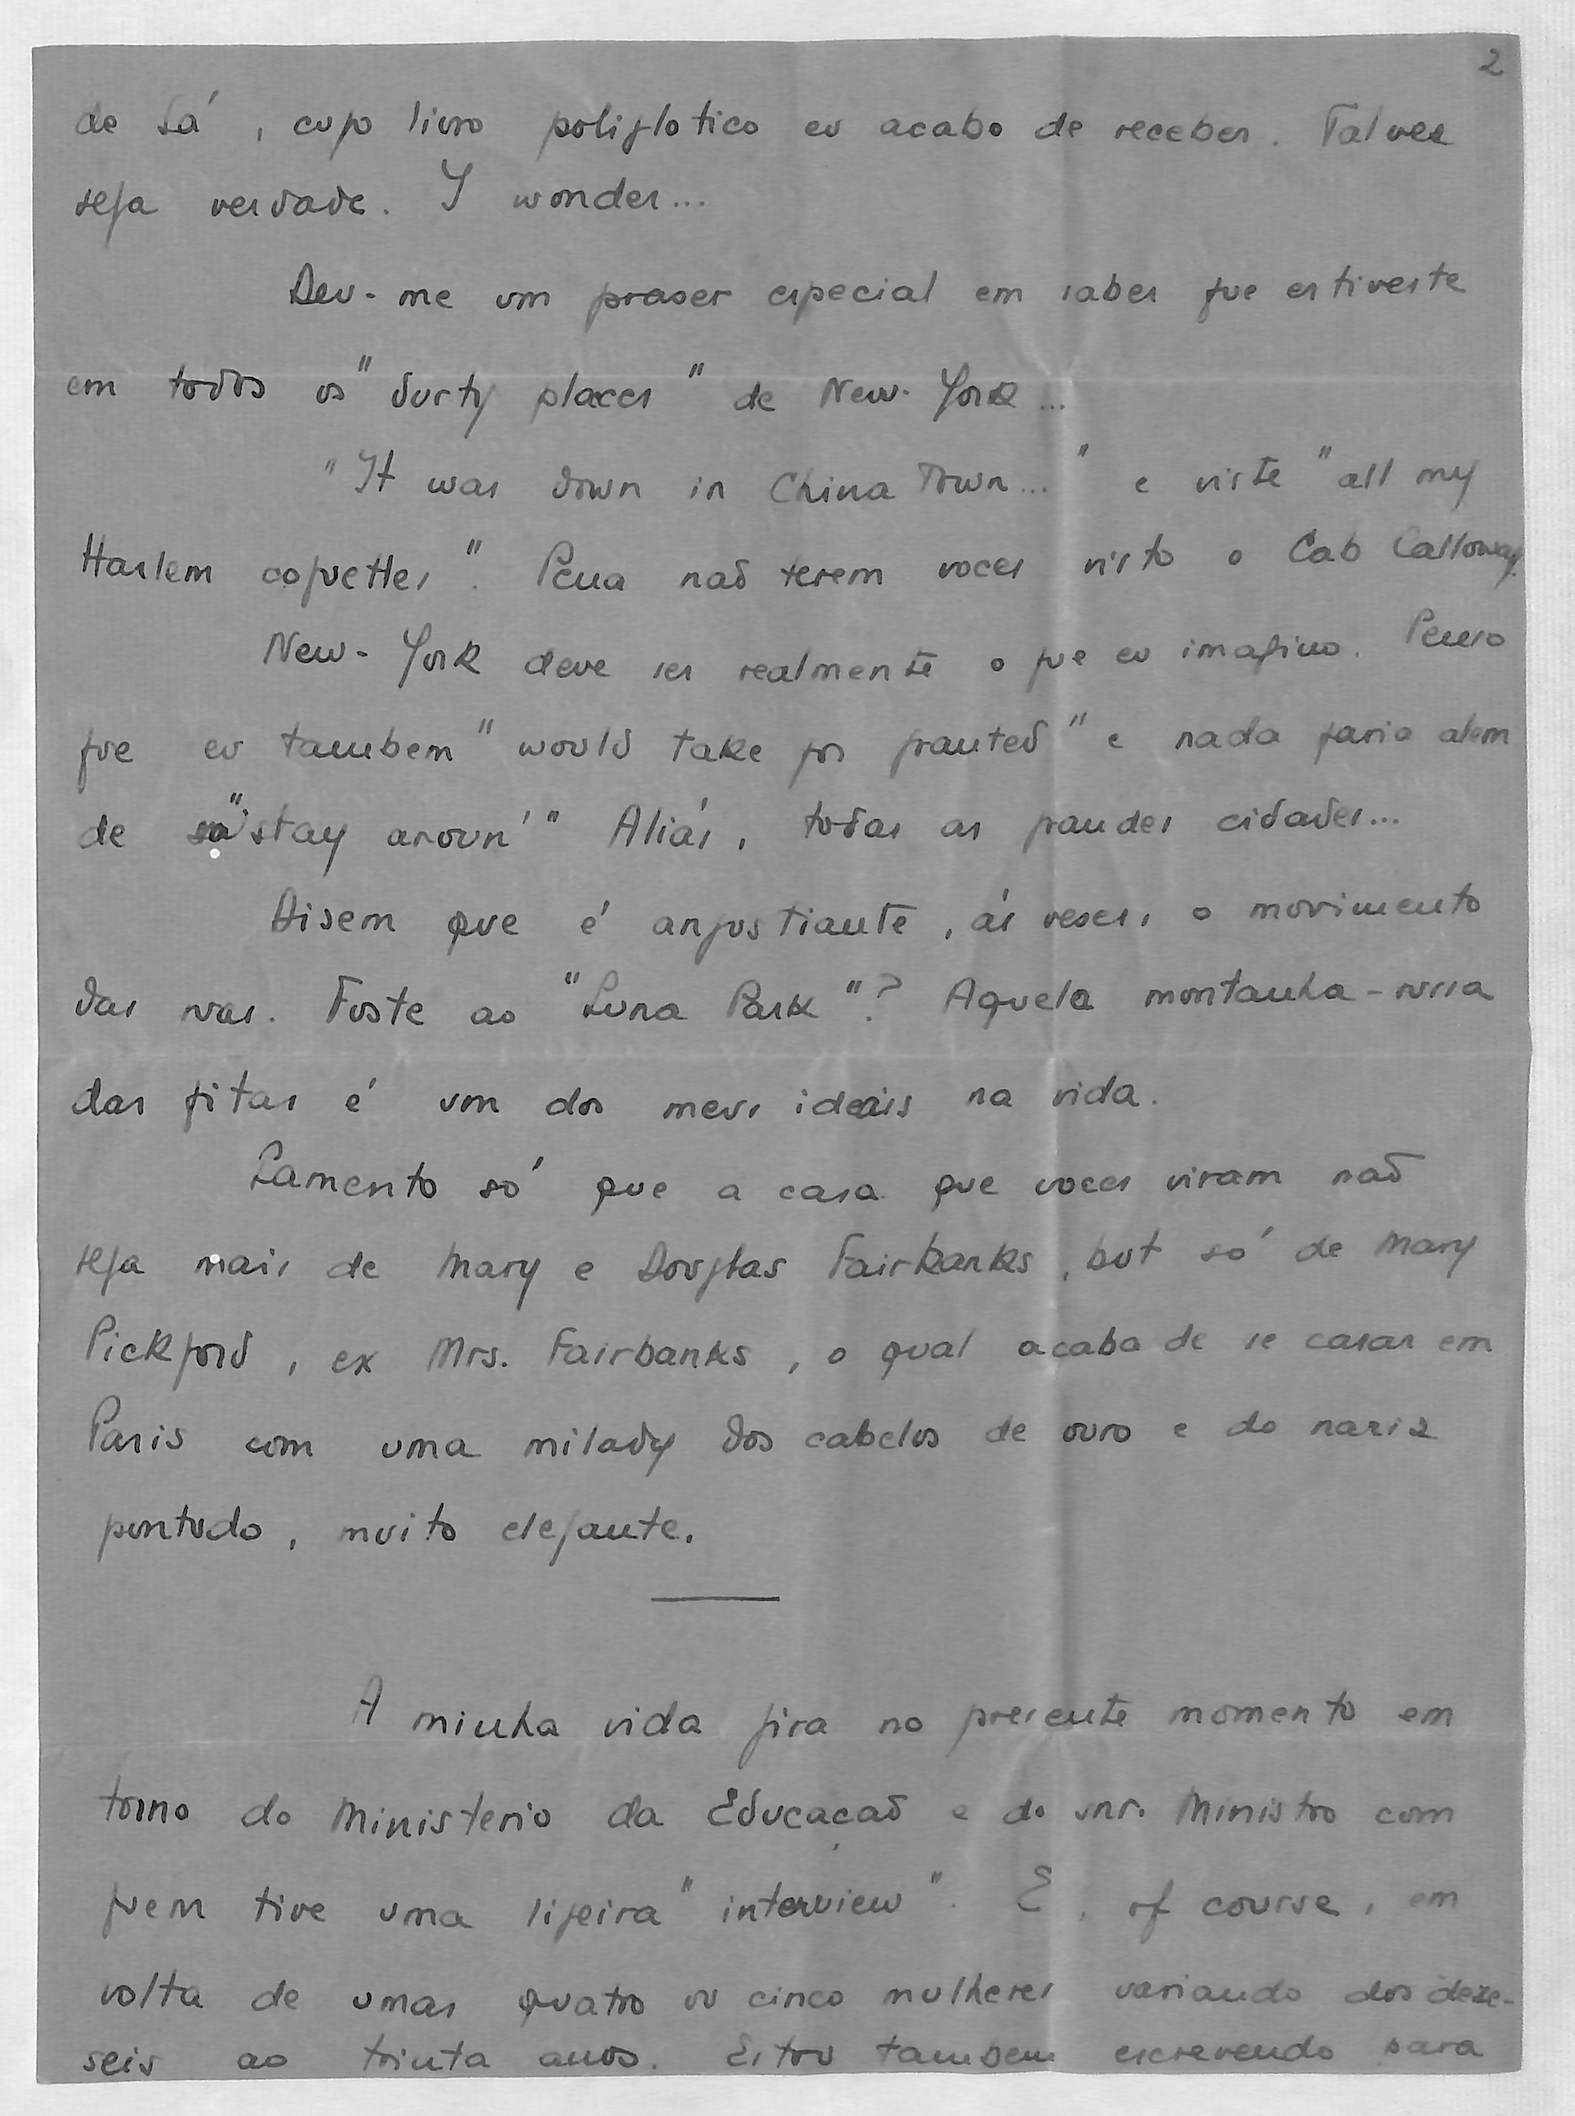 2
de Sá, cujo livro poliglotico eu acabo de receber. Talvez
seja verdade. I wonder...
Deu-me um praser especial em saber que estiveste
em todos os "durty places" de New-York...
"It was down in China Town..." e viste "all my
Harlem coquettes". Pena naõ terem voces visto o Cab Calloway.
New-York deve ser realmente o que eu imagino. Penso
que eu tambem "would take for granted" e nada faria alem
de "stay aroun'" Aliás, todas as grandes cidades...
Disem que é angustiante, ás veses, o movimento
das ruas. Foste ao "Luna Park"? Aquela montanha-russa
das fitas é um dos meus ideais na vida.
Lamento só que a casa que voces viram naõ
seja mais de Mary e Douglas Fairbanks, but só de Mary
Pickford, ex Mrs. Fairbanks, o qual acaba de se casar em
Paris com uma milady dos cabelos de ouro e do nariz
pontudo, muito elegante.
A minha vida gira no presente momento em
torno do Ministerio da Educaçaõ e do snr. Ministro com
quem tive uma ligeira "interview". E, of course, em
volta de umas quatro ou cinco mulheres variando dos deze-
seis ao trinta anos. Estou tambem escrevendo para